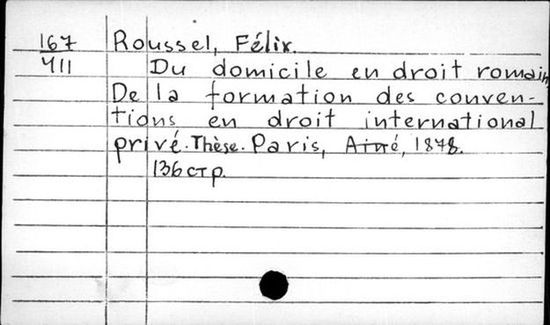 167 Roussel, Félix.
411 Du domicile en droit romain,
De la formation des conven-
tions en droit international
privé. Thèse. Paris, 1878.
136 стр.